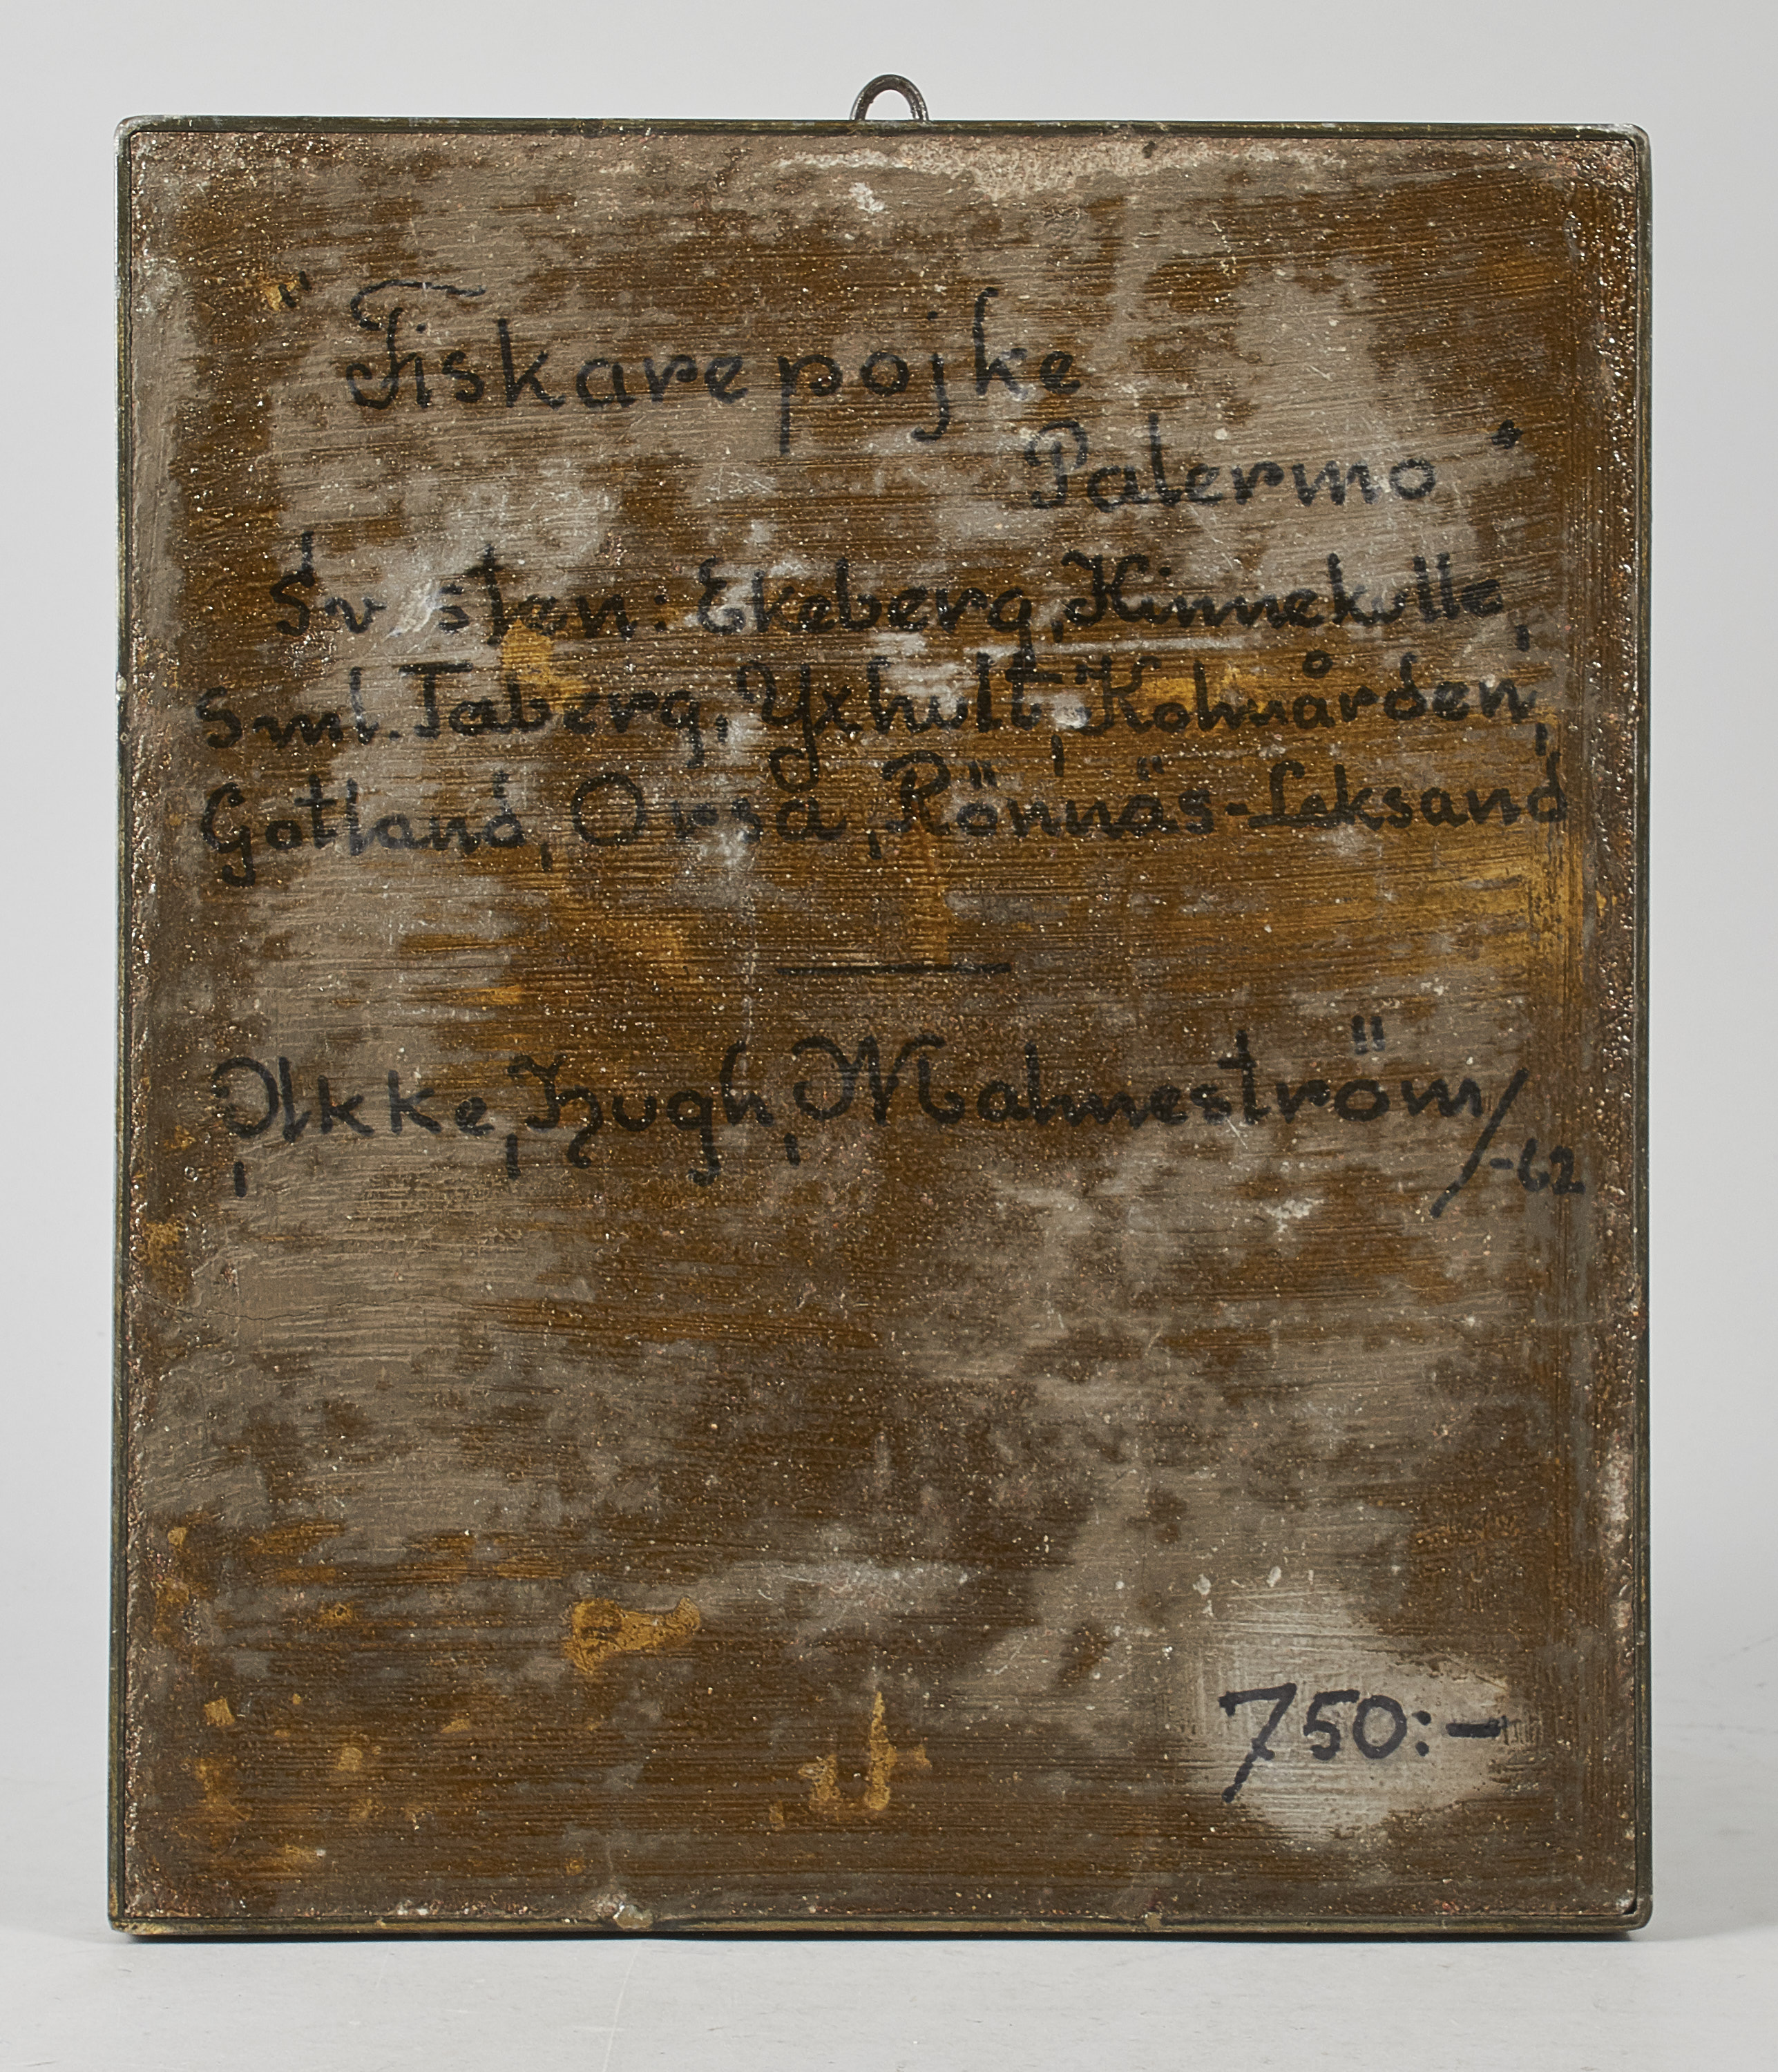 "Fiskarepojke
Palermo"
Sv sten: Ekeberg, Kinnekulle,
Sml. Taberg, Yxhult, Kolmården,
Gotland, Orsa, Rönnäs-Leksand
Akke, Hugh, Malmeström/-62
750:-